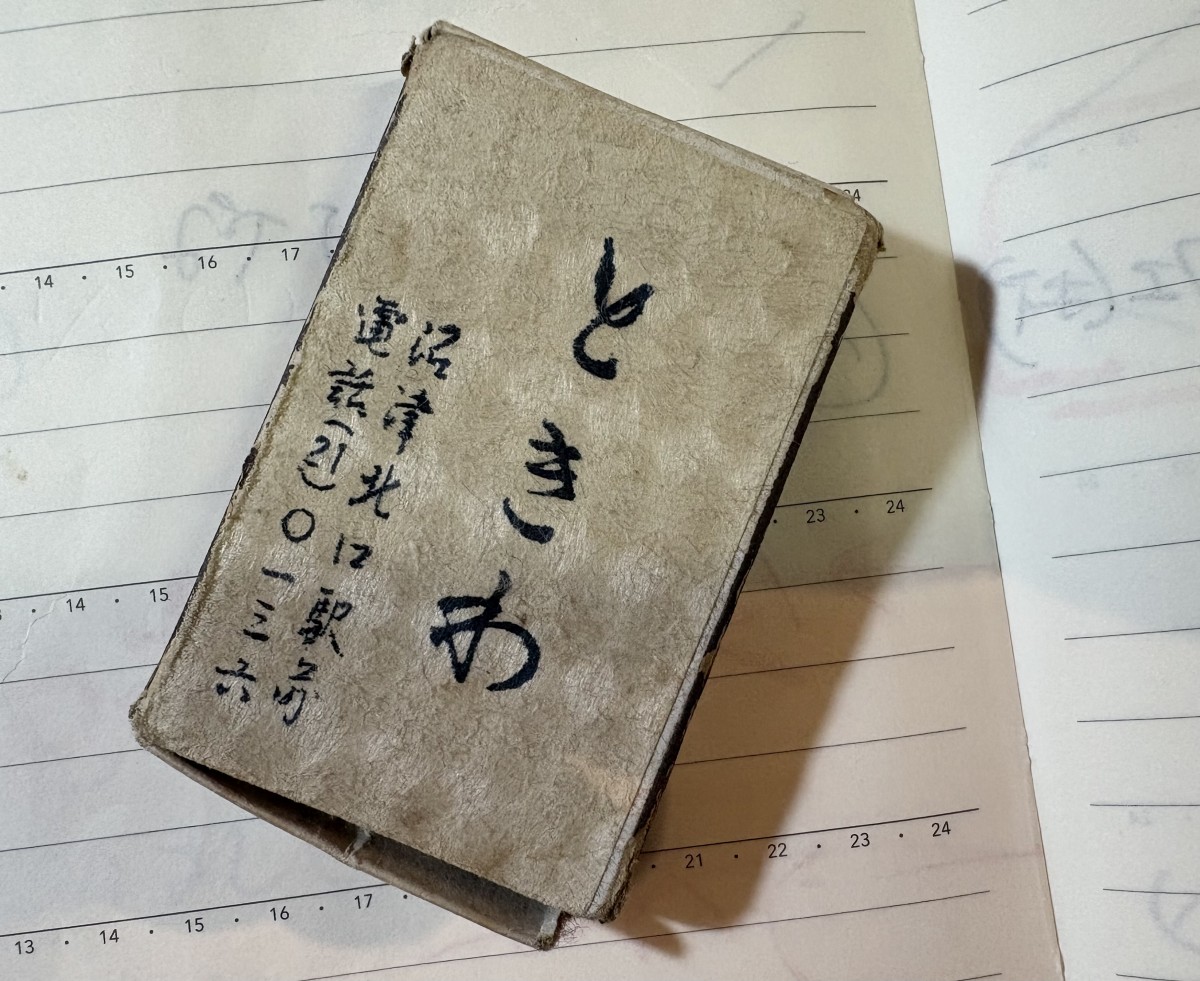 ときわ
沼津北口駅前
電話(21)〇一三六
14 · 15 · 16 · 17
24
23 · 24
14 · 15
21 · 22 · 23 · 24
13 · 14 · 15 · 16 · 17